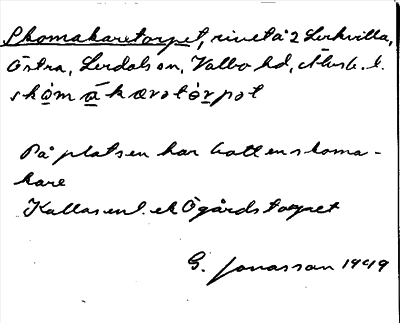 Skomakaretorpet, rivet å 2 Lerkvilla,
Östra, Lerdals sn, Valbo hd, Älvsb. l.
skòm ā́ karətòrpət
På platsen har bott en skoma-
kare
Kallas enl. ek Ögårdstorpet
G. Jonasson 1949